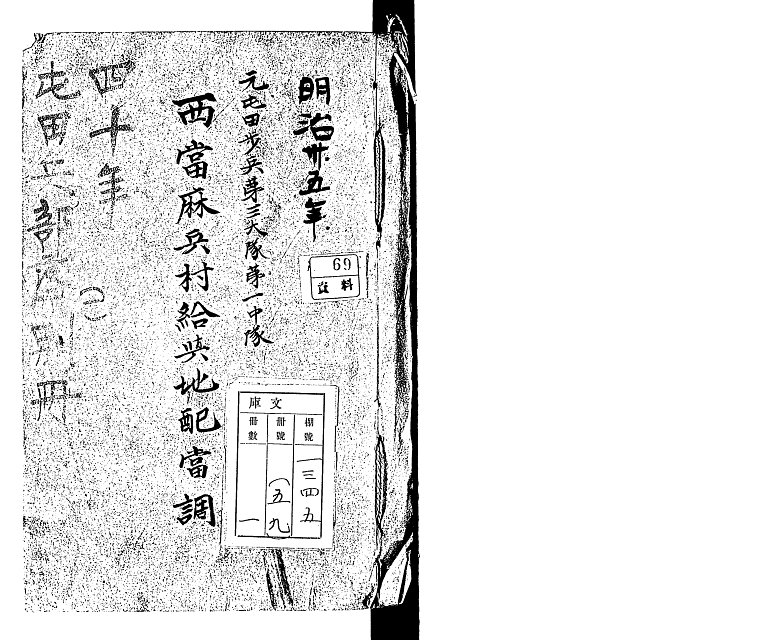 明治卅五年
元屯田歩兵第三大隊第一中隊
西當麻兵村給與地配當調
四十年
屯田兵部
別冊
69
資料
文庫
棚號
一三四五
冊號
(五九
冊數
一